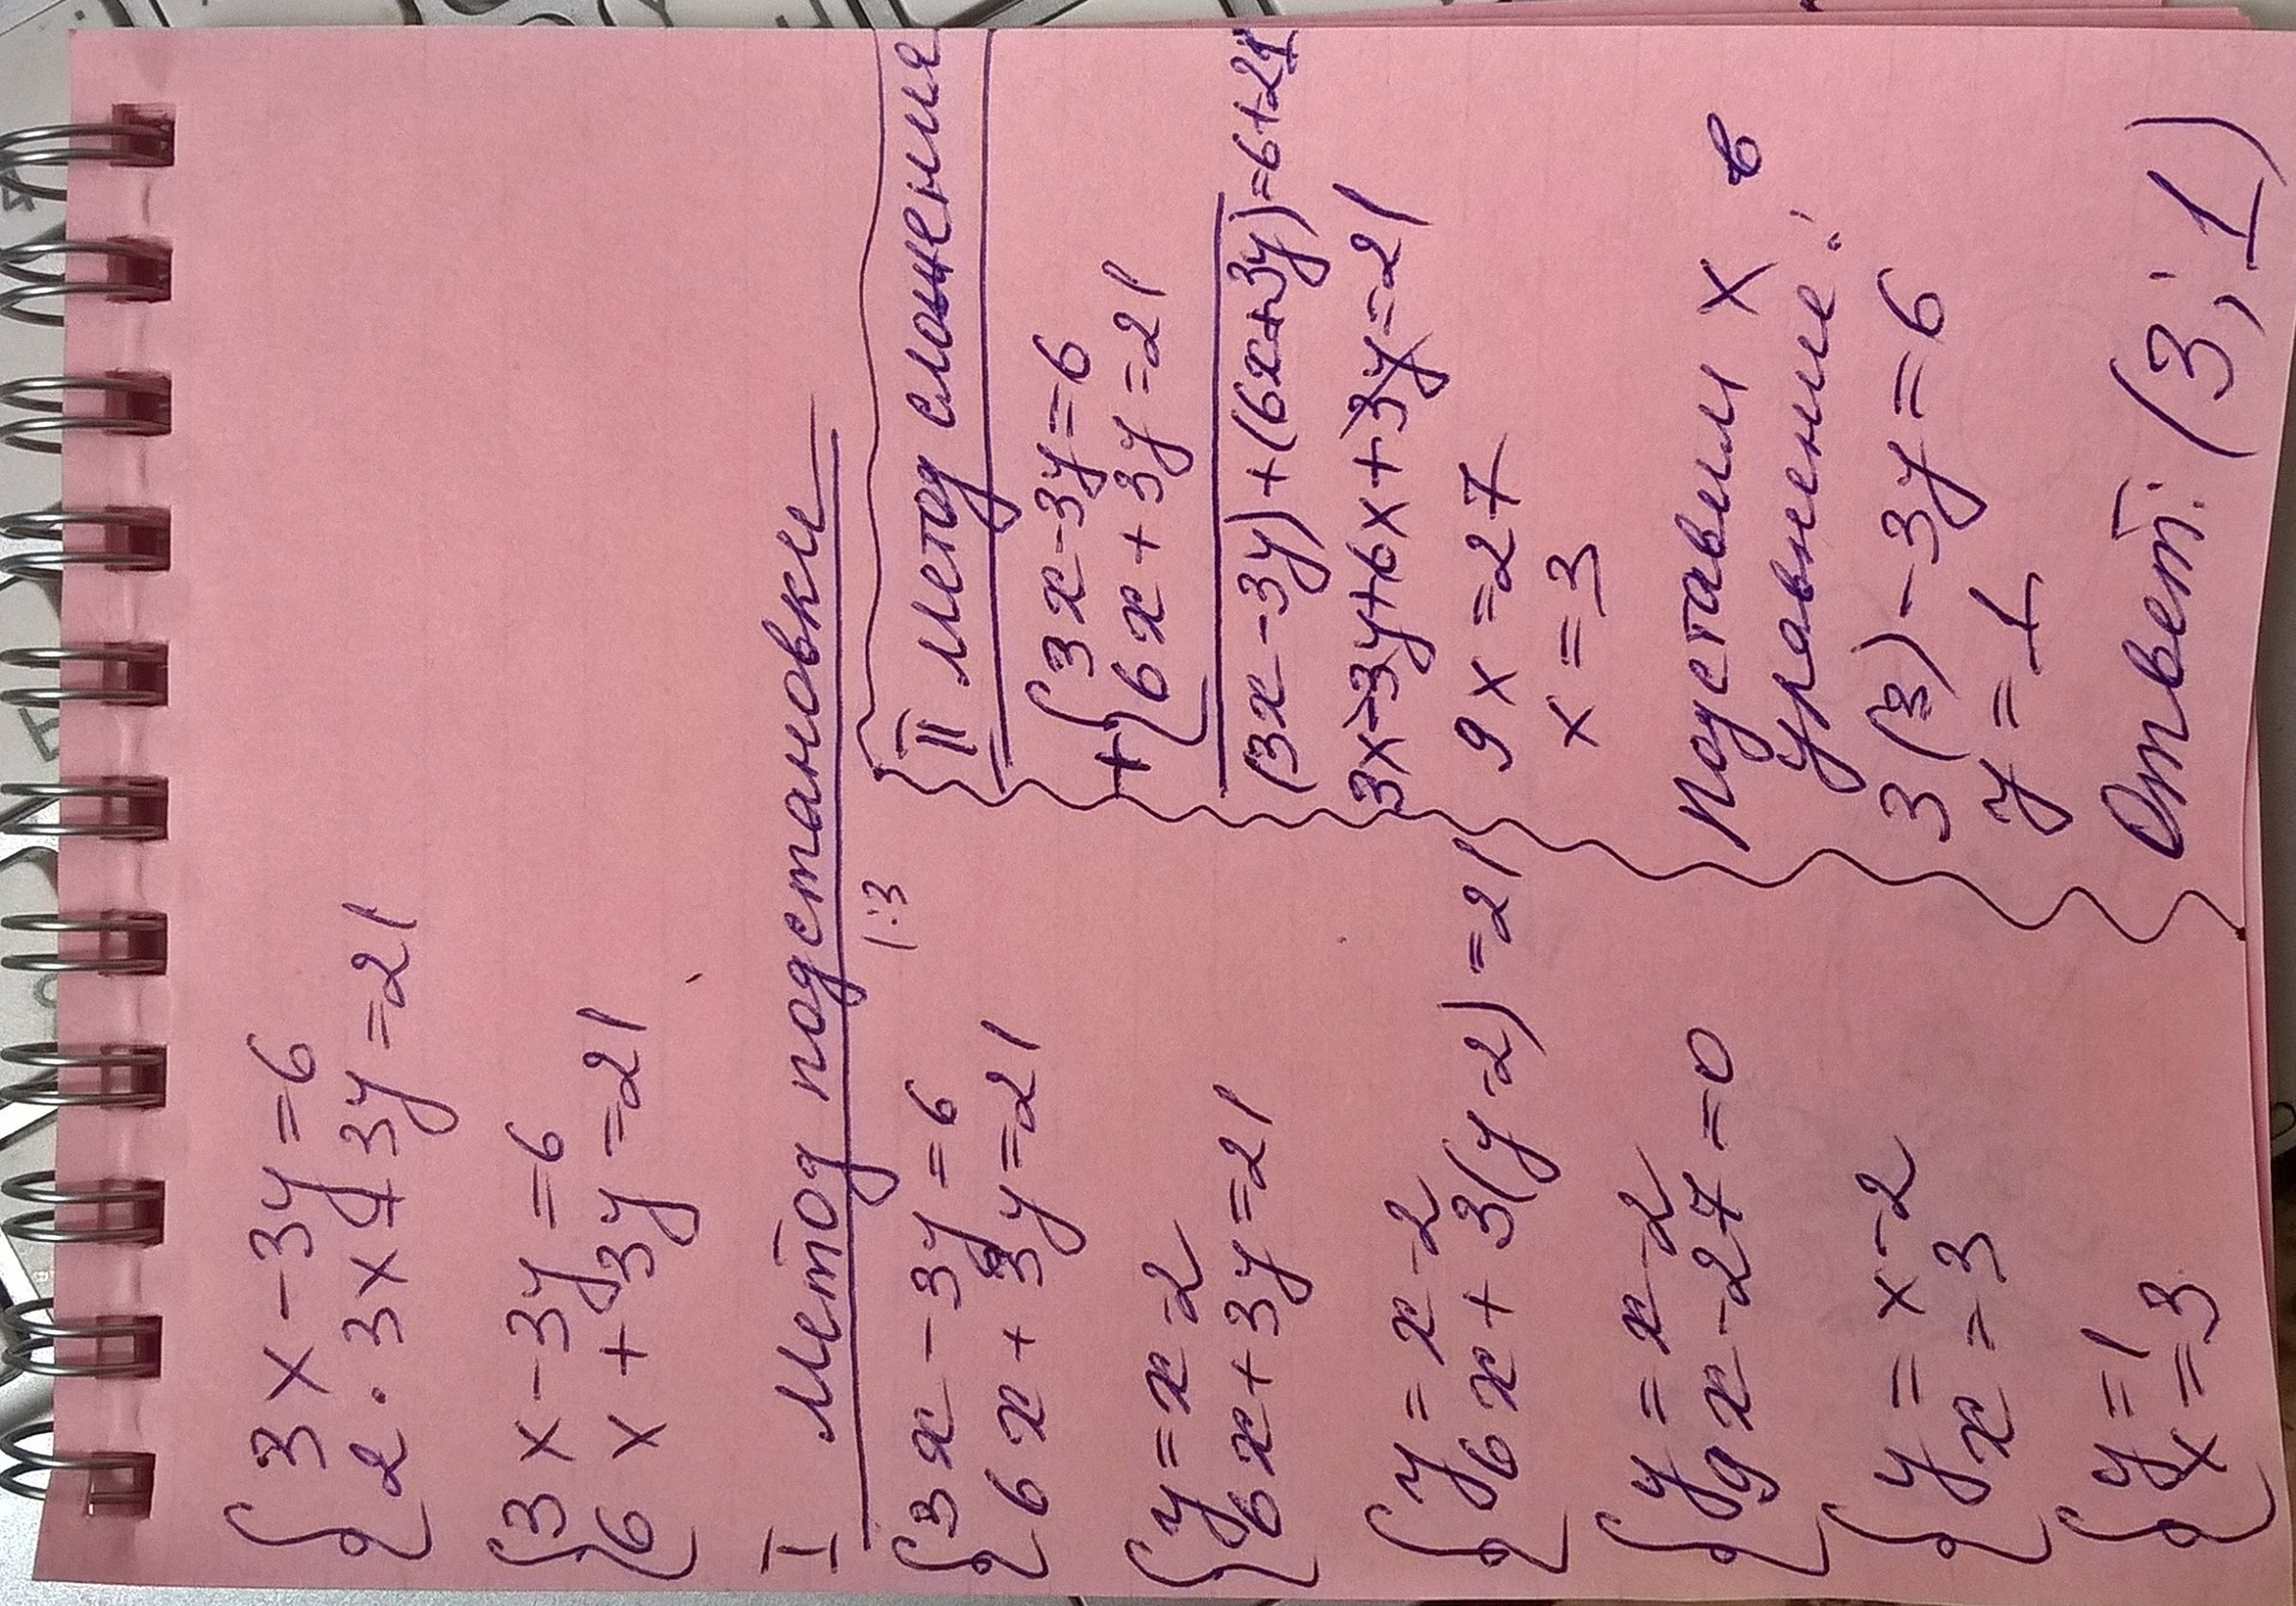 3x-3y=6
2·3x+3y=21
3x-3y=6
6x+3y=21
I метод подстановки
3x-3y=6 |:3
6x+3y=21
y=x-2
6x+3y=21
y=x-2
6x+3(y-2)=21
y=x-2
9x-27=0
y=x-2
x=3
y=1
x=3
II метод сложения
3x-3y=6
+
6x+3y=21
(3x-3y)+(6x+3y)=6+21
3x-3y+6x+3y=21
9x=27
x=3
Подставим x в
уравнение:
3(3)-3y=6
y=1
Ответ: (3;1)